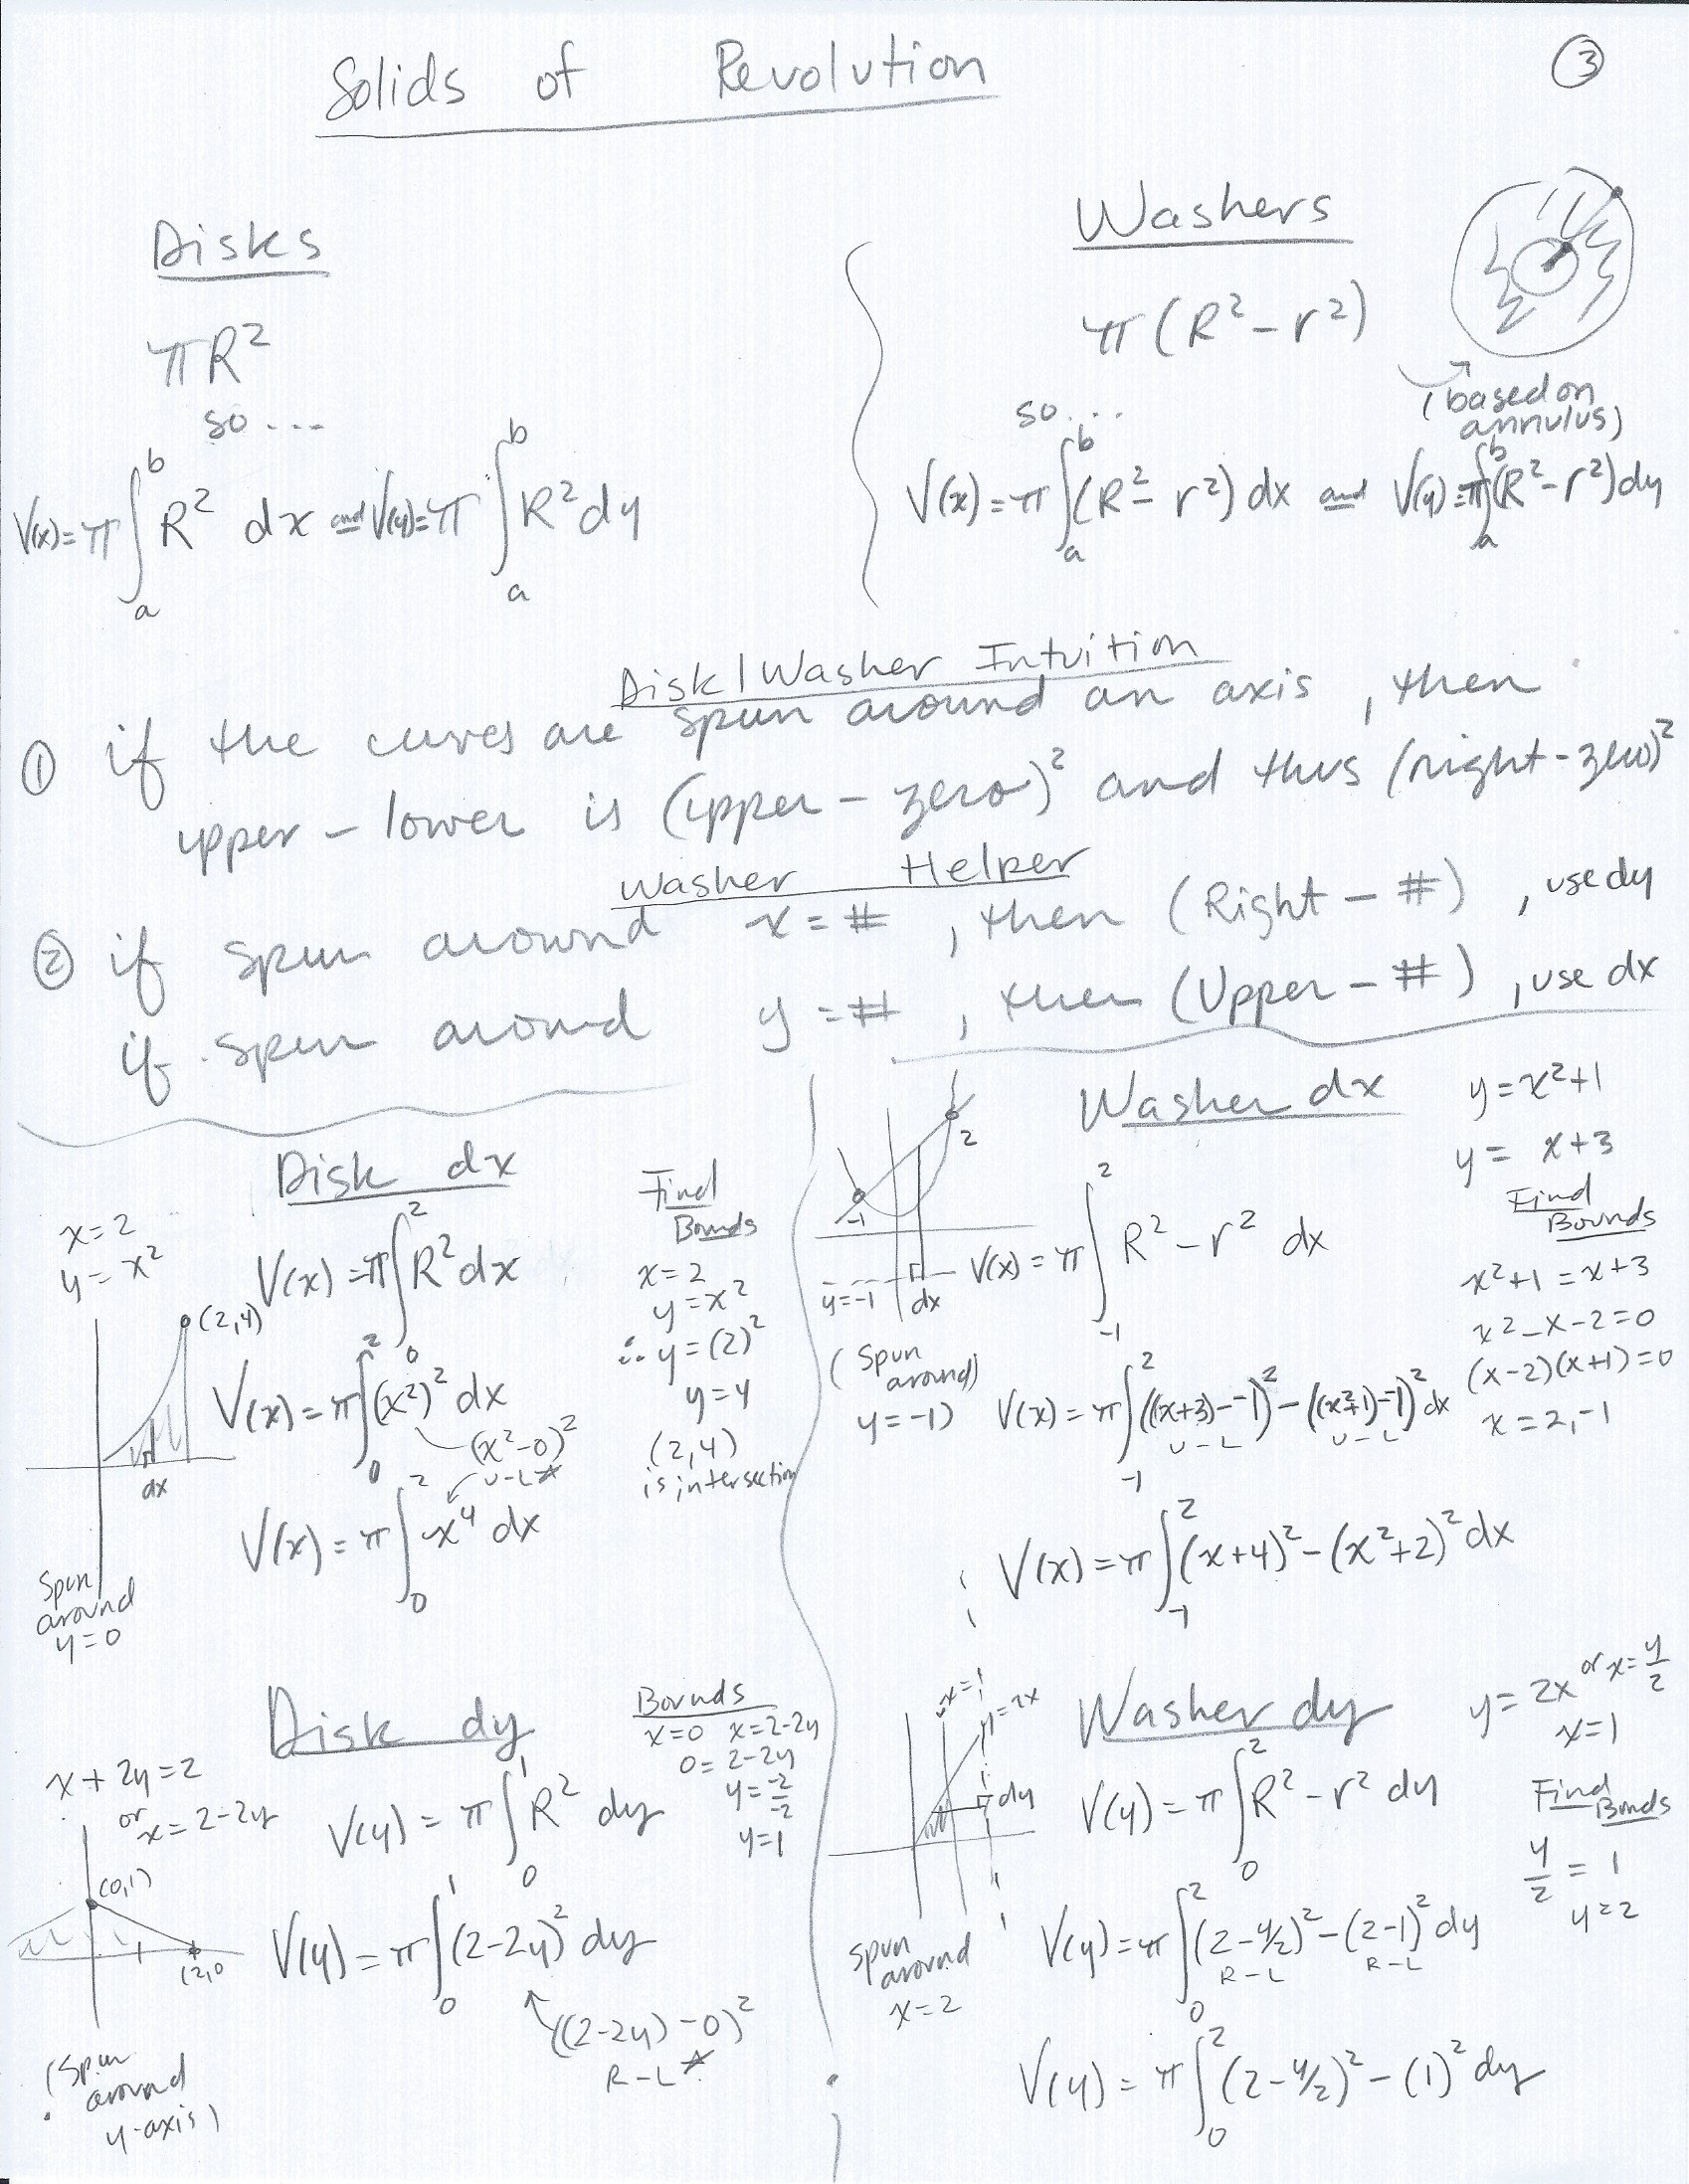 Solids of Revolution
③
Disks
πR²
so...
V(x)=π∫_a^b R² dx and V(y)=π∫_a^b R² dy
Washers
π(R²-r²)
(based on
annulus)
so...
V(x)=π∫_a^b (R²-r²) dx and V(y)=π∫_a^b (R²-r²) dy
Disk/Washer Intuition
① if the curves are spun around an axis, then
upper - lower is (upper - zero)² and thus (right - zero)²
Washer Helper
② if spun around x=#, then (Right - #), use dy
if spun around y=#, then (Upper - #), use dx
Disk dx
x=2
y=x²
(2,4)
dx
Spun
around
y=0
V(x)=π∫_0^2 R² dx
V(x)=π∫_0^2 (x²)² dx
(x²-0)²
U-L
V(x)=π∫_0^2 x⁴ dx
Find
Bounds
x=2
y=x²
∴ y=(2)²
y=4
(2,4)
is intersection
Washer dx
y=x²+1
y=x+3
2
-1
y=-1
dx
(Spun
around)
y=-1)
V(x)=π∫_{-1}^2 R²-r² dx
Find
Bounds
x²+1=x+3
x²-x-2=0
(x-2)(x+1)=0
x=2,-1
V(x)=π∫_{-1}^2 ((x+3)--1)²-((x²+1)--1)² dx
U-L U-L
V(x)=π∫_{-1}^2 (x+4)²-(x²+2)² dx
Disk dy
x+2y=2
or
x=2-2y
(0,1)
(2,0
(Spun
around
y-axis)
Bounds
x=0 x=2-2y
0=2-2y
y=-2/-2
y=1
V(y)=π∫_0^1 R² dy
V(y)=π∫_0^1 (2-2y)² dy
((2-2y)-0)²
R-L
Washer dy
y=2x or x=y/2
x=1
x=1
y=2x
dy
Spun
around
x=2
V(y)=π∫_0^2 R²-r² dy
Find
Bounds
y/2=1
y=2
V(y)=π∫_0^2 (2-y/2)²-(2-1)² dy
R-L R-L
V(y)=π∫_0^2 (2-y/2)²-(1)² dy